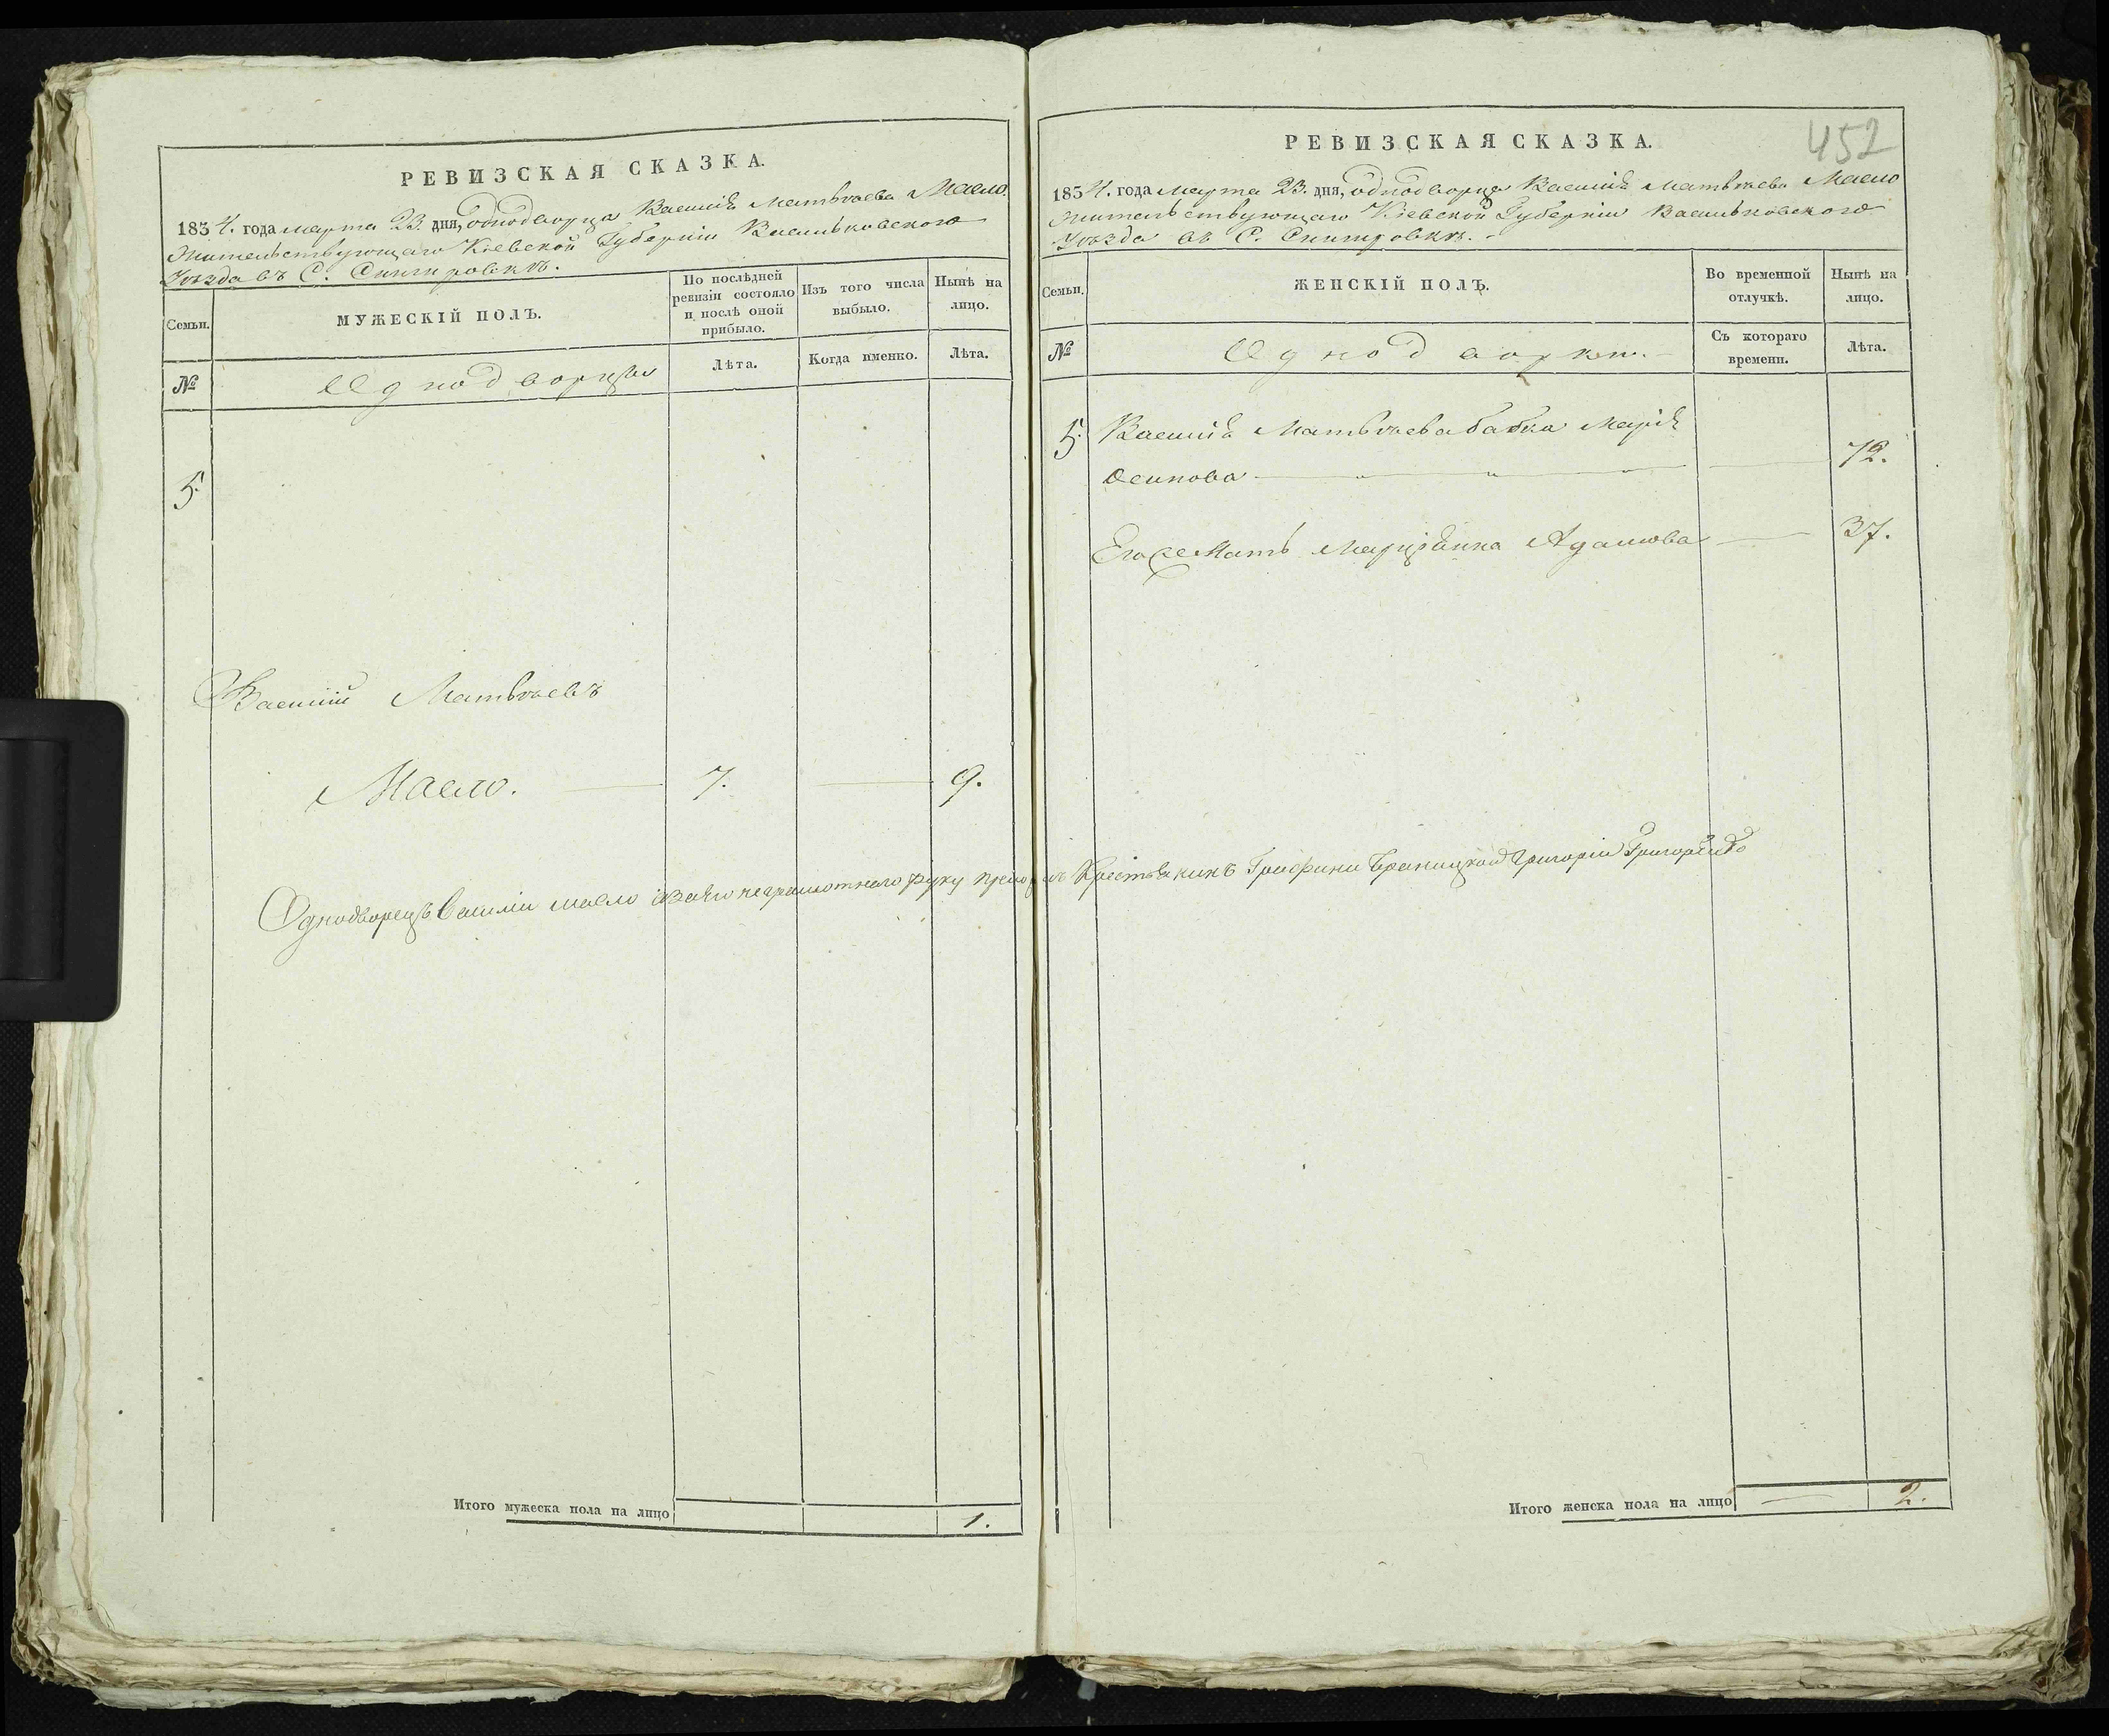 РЕВИЗСКАЯ СКАЗКА.
1834. года марта 23. дня, однодворца Василія Матвѣева Масло.
жительствующаго Кіевской Губерніи Васильковскаго
Уѣзда въ С.
Семьи.
МУЖЕСКІЙ ПОЛЪ.
По послѣдней ревизіи состояло и послѣ оной прибыло.
Изъ того числа выбыло.
Нынѣ на лицо.
№
Однодворцы
Лѣта.
Когда именно.
Лѣта.
5.
Василій Матвѣевъ
Масло. 7. 9.
Однодворецъ Василій Масло а за его неграмотнаго руку
Итого мужеска пола на лицо 1.
452
РЕВИЗСКАЯ СКАЗКА.
1834. года Марта 23. дня, однодворца Василія Матвѣева Масло
жительствующаго Кіевской Губерніи Васильковскаго
Уѣзда въ С.
Семьи.
ЖЕНСКІЙ ПОЛЪ.
Во временной отлучкѣ.
Нынѣ на лицо.
№
Однодворки.
Съ котораго времени.
Лѣта.
5. Василія Матвѣева бабка Марія
Осипова 72.
Его же Мать Маріянна Адамова 37.
Крестьянинъ Графини Браницкой Григорій Григоренко
Итого женска пола на лицо 2.